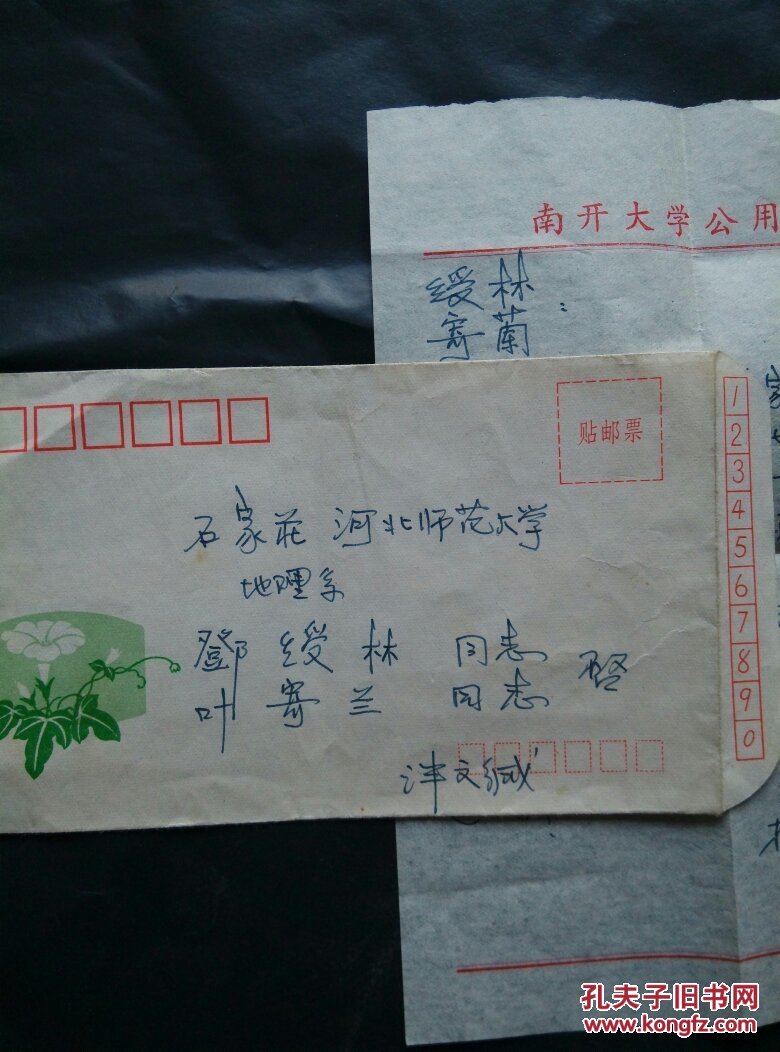 南开大学公用
绶林
寄蘭：
贴邮票
1
2
3
4
5
6
7
8
9
0
石家莊 河北师范大学
地理系
鄧绶林 同志
叶寄兰 同志 啓
津文缄
孔夫子旧书网
www.kongfz.com